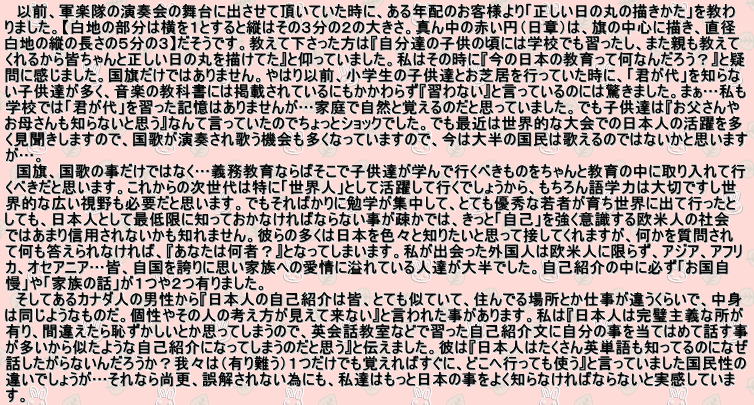 以前、軍楽隊の演奏会の舞台に出させて頂いていた時に、ある年配のお客様より「正しい日の丸の描きかた」を教わ
りました。【白地の部分は横を１とすると縦はその３分の２の大きさ。真ん中の赤い円（日章）は、旗の中心に描き、直径
白地の縦の長さの５分の３】だそうです。教えて下さった方は『自分達の子供の頃には学校でも習ったし、また親も教えて
くれるから皆ちゃんと正しい日の丸を描けてた』と仰っていました。私はその時に『今の日本の教育って何なんだろう？』と疑
問に感じました。国旗だけではありません。やはり以前、小学生の子供達とお芝居を行っていた時に、「君が代」を知らな
い子供達が多く、音楽の教科書には掲載されているにもかかわらず『習わない』と言っているのには驚きました。まぁ…私も
学校では「君が代」を習った記憶はありませんが…家庭で自然と覚えるのだと思っていました。でも子供達は『お父さんや
お母さんも知らないと思う』なんて言っていたのでちょっとショックでした。でも最近は世界的な大会での日本人の活躍を多
く見聞きしますので、国歌が演奏され歌う機会も多くなっていますので、今は大半の国民は歌えるのではないかと思います
が…。
国旗、国歌の事だけではなく…義務教育ならばそこで子供達が学んで行くべきものをちゃんと教育の中に取り入れて行
くべきだと思います。これからの次世代は特に「世界人」として活躍して行くでしょうから、もちろん語学力は大切ですし世
界的な広い視野も必要だと思います。でもそればかりに勉学が集中して、とても優秀な若者が育ち世界に出て行ったと
しても、日本人として最低限に知っておかなければならない事が疎かでは、きっと「自己」を強く意識する欧米人の社会
ではあまり信用されないかも知れません。彼らの多くは日本を色々と知りたいと思って接してくれますが、何かを質問され
て何も答えられなければ、『あなたは何者？』となってしまいます。私が出会った外国人は欧米人に限らず、アジア、アフリ
カ、オセアニア…皆、自国を誇りに思い家族への愛情に溢れている人達が大半でした。自己紹介の中に必ず「お国自
慢」や「家族の話」が１つや２つ有りました。
そしてあるカナダ人の男性から『日本人の自己紹介は皆、とても似ていて、住んでる場所とか仕事が違うくらいで、中身
は同じようなものだ。個性やその人の考え方が見えて来ない』と言われた事があります。私は『日本人は完璧主義な所が
有り、間違えたら恥ずかしいとか思ってしまうので、英会話教室などで習った自己紹介文に自分の事を当てはめて話す事
が多いから似たような自己紹介になってしまうのだと思う』と伝えました。彼は『日本人はたくさん英単語も知ってるのになぜ
話したがらないんだろうか？我々は（有り難う）１つだけでも覚えればすぐに、どこへ行っても使う』と言っていました国民性の
違いでしょうが…それなら尚更、誤解されない為にも、私達はもっと日本の事をよく知らなければならないと実感していま
す。